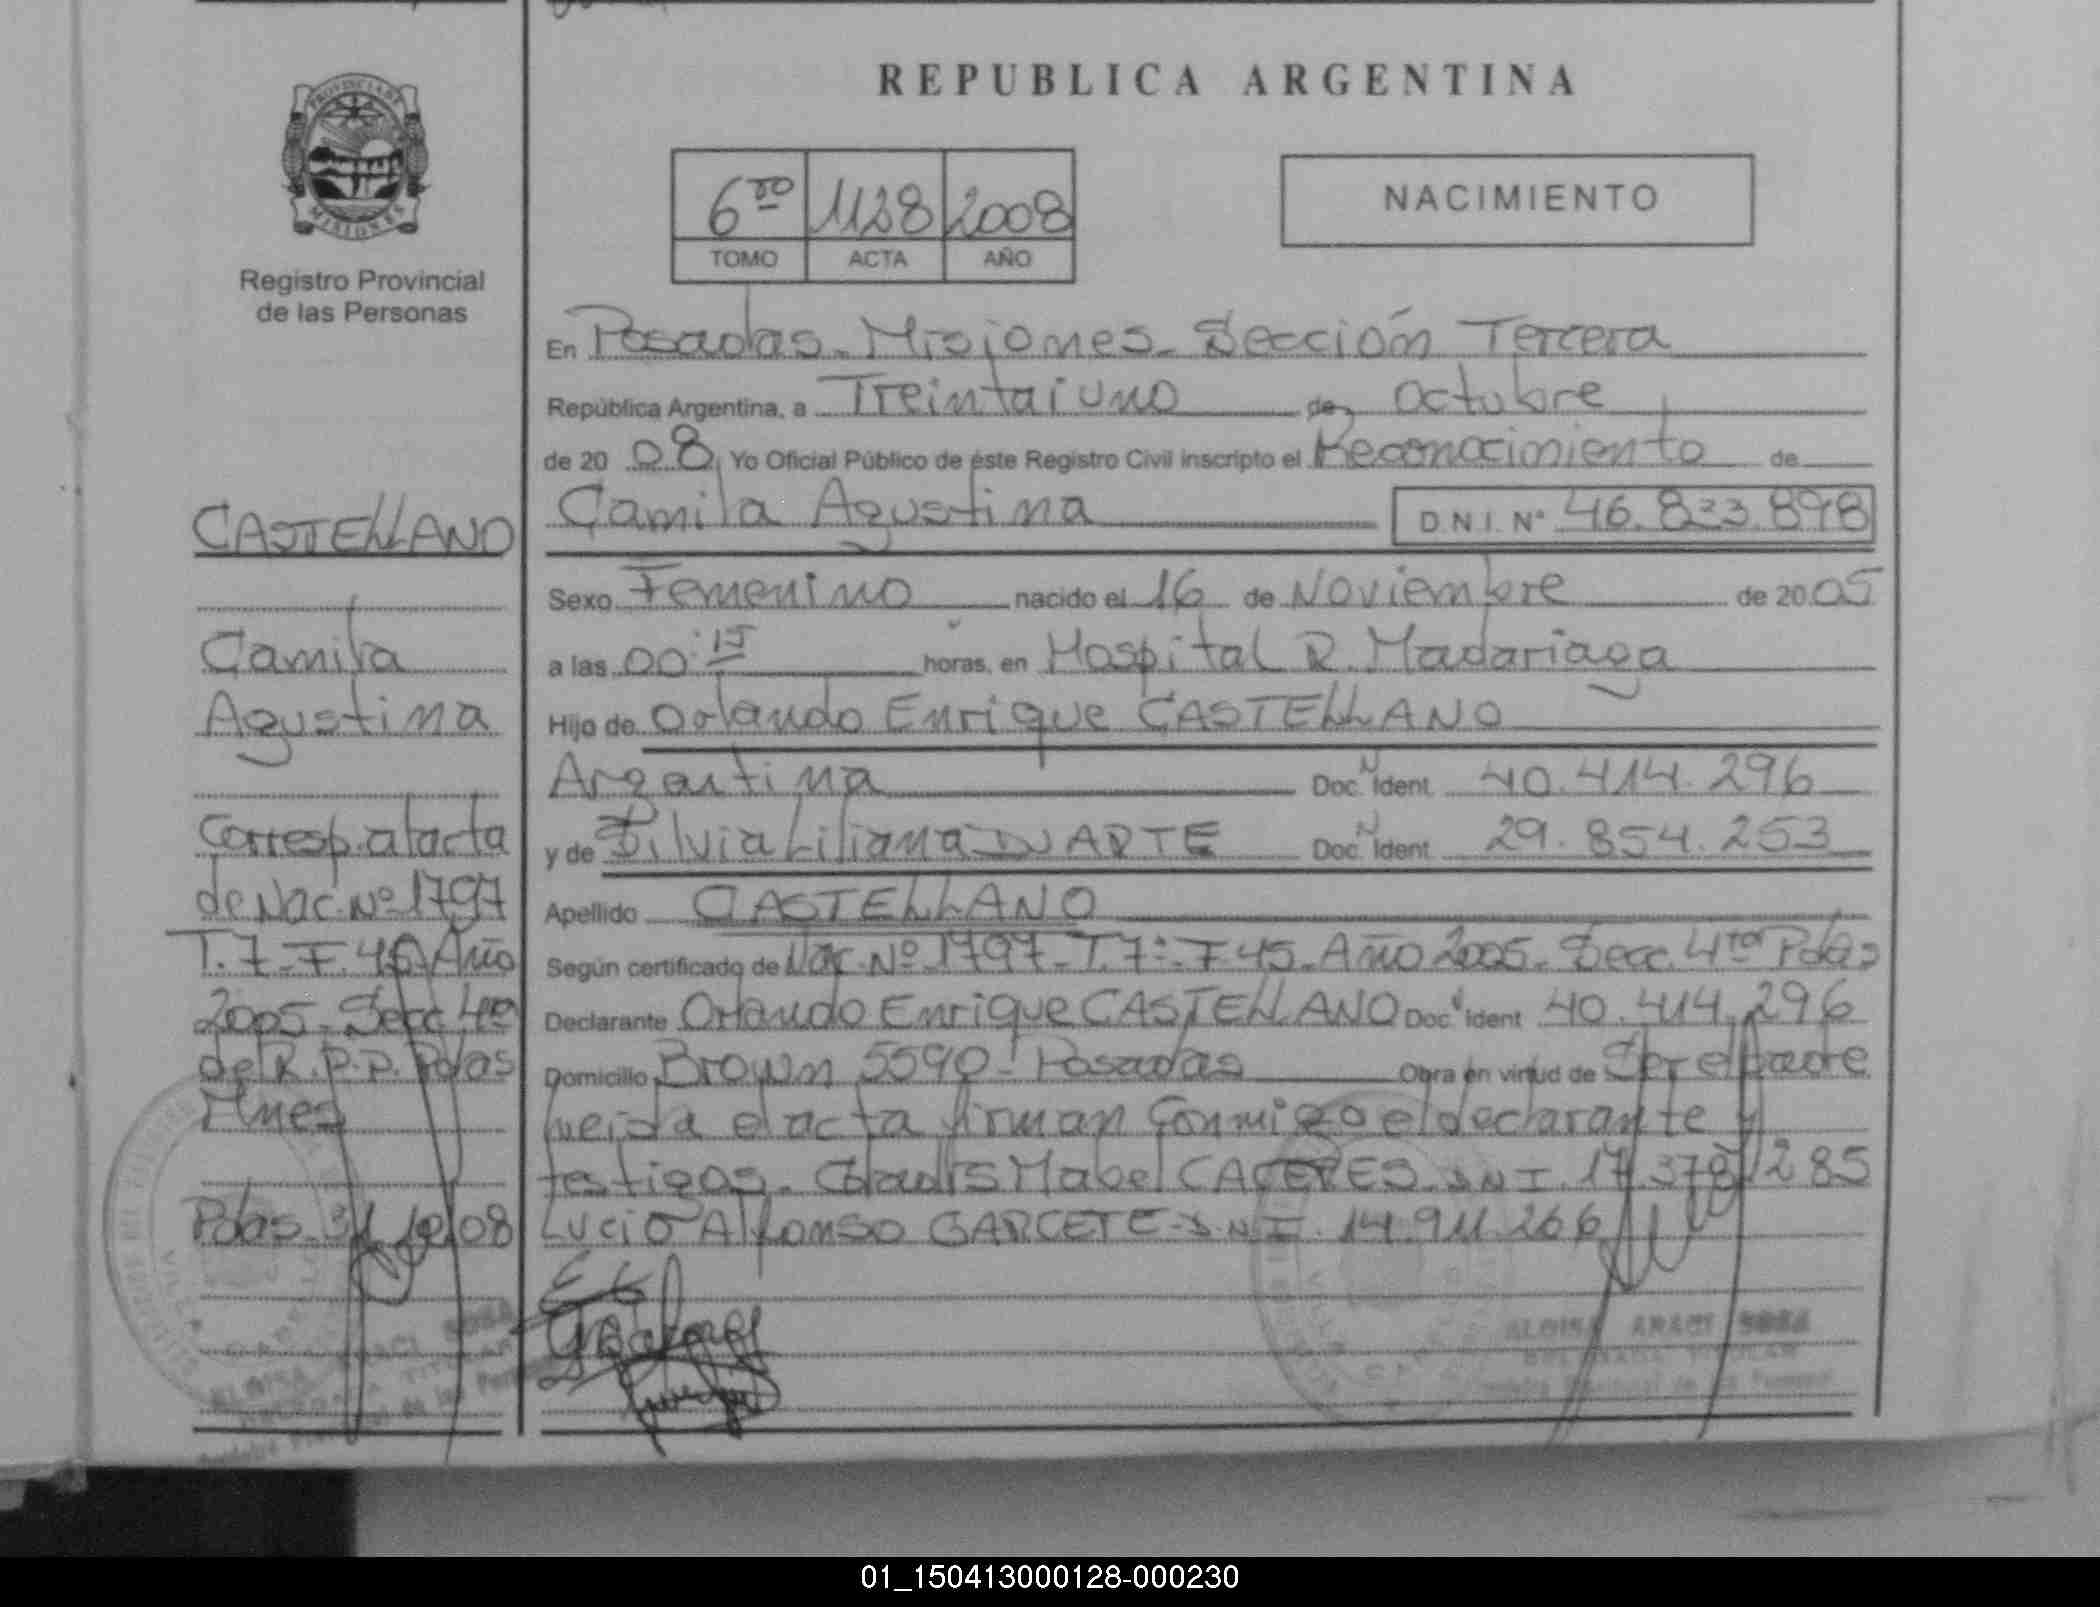 REPUBLICA ARGENTINA
PROVINCIA DE
MISIONES
Registro Provincial
de las Personas
6to 1128 2008
TOMO ACTA AÑO
NACIMIENTO
En Posadas - Misiones - Sección Tercera
República Argentina, a Treintaiuno de Octubre
de 20 08 Yo Oficial Público de éste Registro Civil inscripto el Reconocimiento de
Camila Agustina D.N.I. Nº 46.823.898
Sexo Femenino nacido el 16 de Noviembre de 2005
a las 00:15 horas, en Hospital R. Madariaga
Hijo de Orlando Enrique CASTELLANO
Argentina Doc. N Ident 40.414.296
y de Silvia Liliana DUARTE Doc. N Ident 29.854.253
Apellido CASTELLANO
Según certificado de Nac. Nº 1797 - T. 7º - F 45 - Año 2005 - Secc. 4ta Pdas
Declarante Orlando Enrique CASTELLANO Doc. Ident 40.414.296
Domicilio Brown 5590 - Posadas Obra en virtud de Ser el padre
Leida el acta firman Conmigo el declarante y
testigos - Gladis Mabel CACERES - D.N.I. 17.378.285
Lucio Alfonso GARCETE - D.N.I. 14.911.266
CASTELLANO
Camila
Agustina
Corresp. al acta
de Nac. Nº 1797
T. 7 - F. 45 Año
2005 - Secc 4ta
de R.P.P. Pdas
Mnes
Pdas 31/10/08
ALOISA ARACI SOSA
01_150413000128-000230